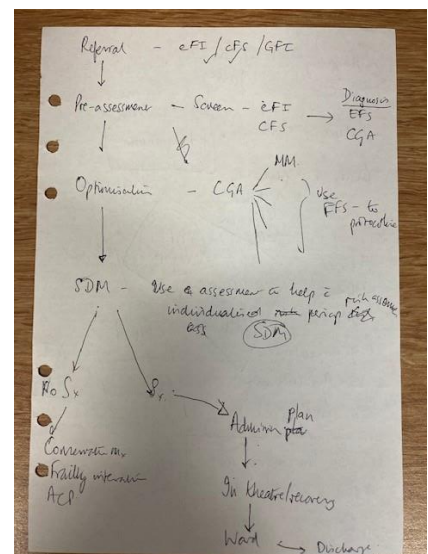 Referral - eFI / CFS / GFI
Pre-assessment - Screen - eFI
CFS
Diagnosis
EFS
CGA
Optimisation - CGA
MM
Use
EFS - to
SDM - Use assessment to help
individualised periop
SDM
No Sx
Sx
Conservative Mx
Frailty intervention
ACP
Admission plan
In theatre/recovery
Ward
Discharge